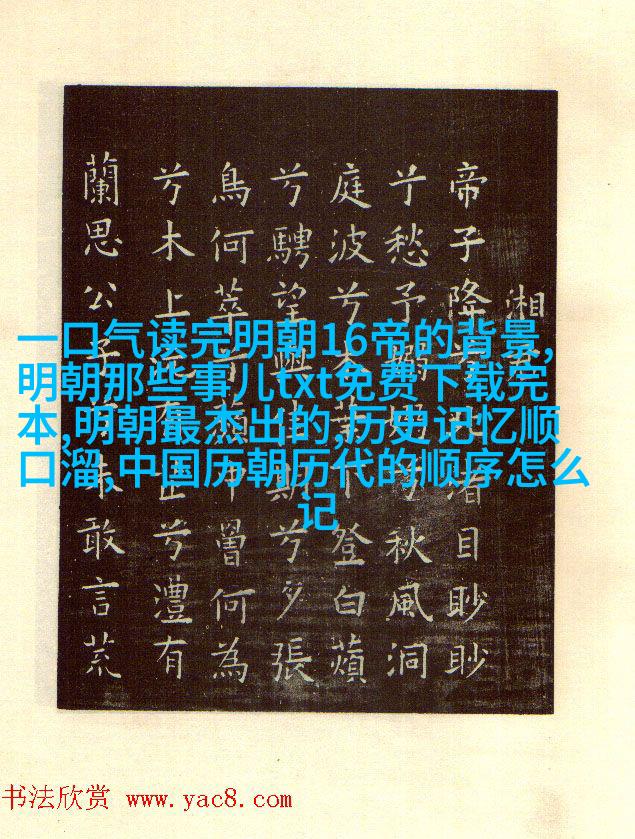 湘
帝子降兮北渚目眇眇
兮愁予嫋嫋兮秋風洞
庭波兮木葉下登白薠
兮騁望與佳期兮夕張
鳥何萃兮蘋中罾何為
兮木上沅有芷兮澧有
蘭思公子兮未敢言荒
一口气读完明朝16帝的背景,
明朝那些事儿txt免费下载完
本,明朝最杰出的,历史记忆顺
口溜,中国历朝历代的顺序怎么
记
书法欣赏 www.yac8.com